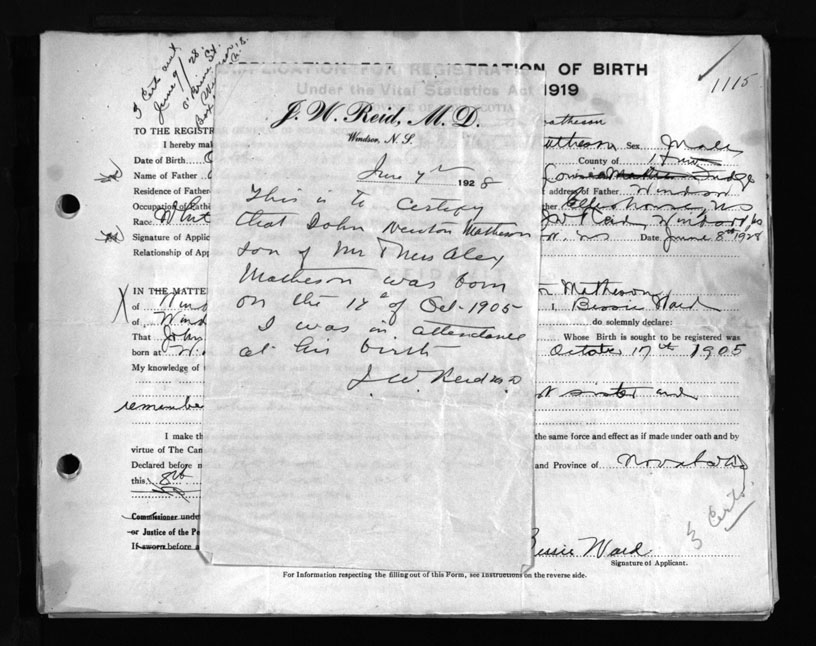 I Cert out
June 9/28
APPLICATION FOR REGISTRATION OF BIRTH
Under the Vital Statistics Act 1919
1115
J. W. Reid, M. D.
Windsor, N. S.
June 7th 1928
This is to Certify
that John Newton Matheson
son of Mr & Mrs Alex
Matheson was born
on the 17th of Oct - 1905
I was in attendance
at his birth
J. W. Reid MD
Matheson
TO THE REGISTR
I hereby mak
Matheson Sex Male
Date of Birth O
County of Hants
Name of Father
Residence of Father
address of Father Windsor
Occupation of Fath
ther Ellershouse, NS
Race White
JW Reid, Windsor, NS
Signature of Applic
NS Date June 8th 1928
Relationship of App
IN THE MATTE
Matheson
of Wind
I, Bessie Ward
of Wind
do solemnly declare:
That John
Whose Birth is sought to be registered was
born at W
October 17th 1905
My knowledge of
sister and
remember
I make th
the same force and effect as if made under oath and by
virtue of The Can
Declared before m
and Province of Nova Scotia
this 8th
Commissioner unde
or Justice of the Pe
If sworn before a
3 Certs.
Bessie Ward
Signature of Applicant.
For Information respecting the filling out of this Form, see Instructions on the reverse side.